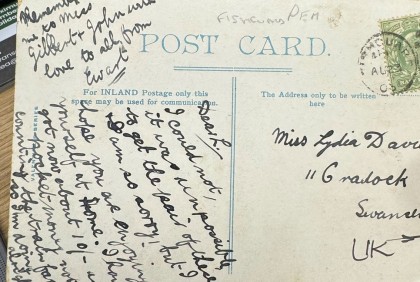 Remember
me to Miss
Gilbert & John with
love to all from
Ewart
FISHGUARD PEM
POST CARD.
For INLAND Postage only this
space may be used for communication.
The Address only to be written
here
Dear L.
I could not,
it was impossible
to get the pair of these
I am so sorry, but I
hope you are enjoying
yourself at home. I have
got now about 10/- a
pocket money
train
Miss Lydia Davi
11 Cradock
Swanse
UK
AU